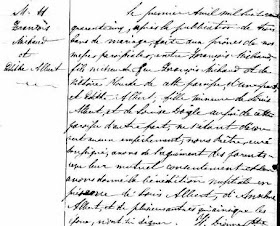 M. 11
François
Michaud
et
Edithe Albert
Le premier Avril mil huit cent
quarante cinq, après la publication de trois
bans de mariage, fait aux prônes de nos
messes paroissiales, entre François Michaud
fils mineur de feu François Michaud et de
de cette paroisse d'une part,
et Edithe Albert, fille mineure de
Albert, et de Louise aussi de cette
paroisse d'autre part, ne s'étant découvert
aucun empêchement, nous Prêtre, curé
soussigné, avons du consentement des parents
reçu leur mutuel consentement et leur
avons donné la bénédiction nuptiale en
présence de Louis Albert, d'
Albert, et de plusieurs autres qui ainsi que les
époux, n'ont su signer.
Ptre